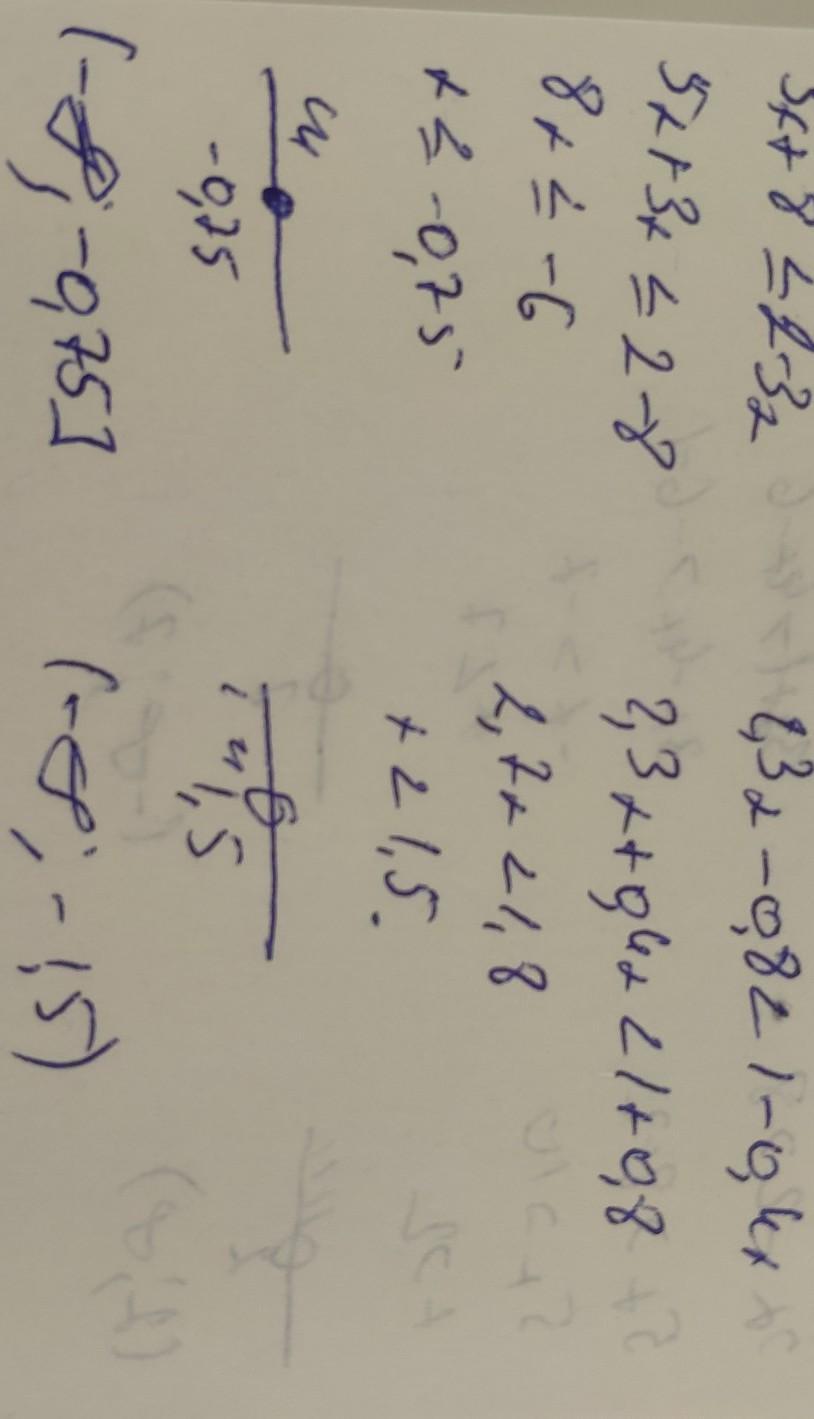 5x+8 ≤ 2-3x
5x+3x ≤ 2-8
8x ≤ -6
x ≤ -0,75
-0,75
(-∞; -0,75]
2,3x-0,8<1-0,4x
2,3x+0,4x<1+0,8
2,7x<1,8
x<1,5.
1,5
(-∞; -1,5)